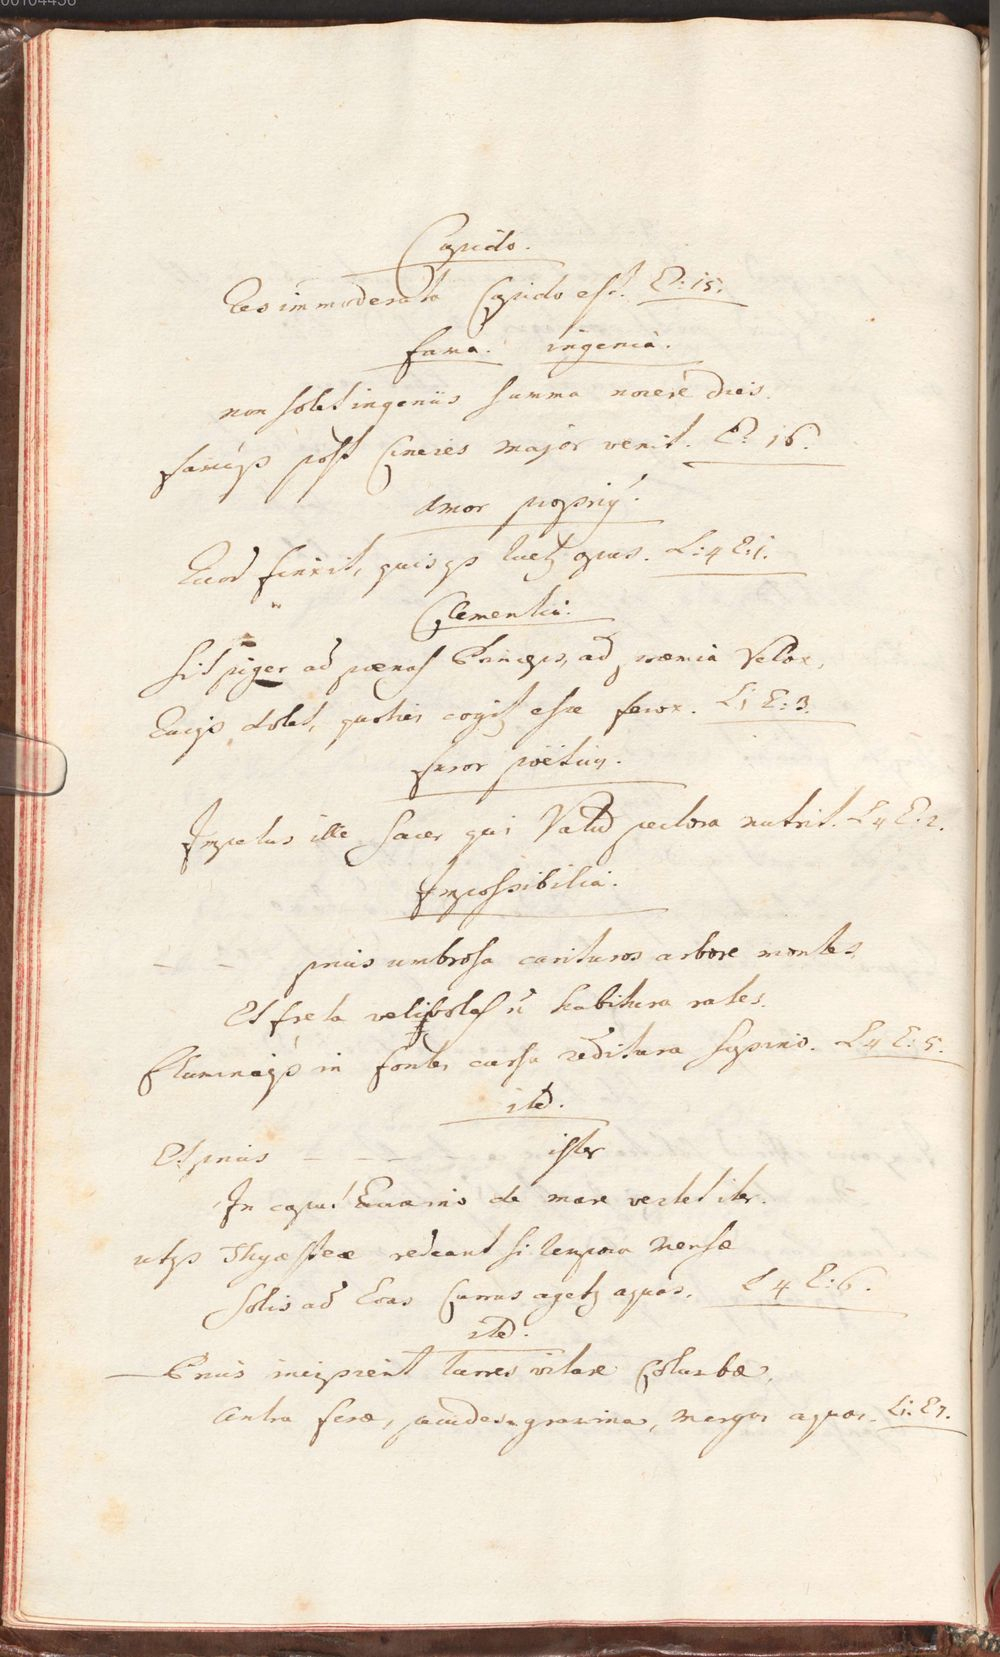 00104436
Cupido.
Res immoderata Cupido est. E: 15.
fama. ingenia.
non solet ingeniis summa nocere dies.
famáqȝ post Cineres major venit. E: 16.
Amor propriꝯ.
Quod finxit, quisqȝ tuetꝛ opus. L: 4 E: 1.
Clementia.
Sit piger ad pœnas Princeps, ad præmia Velox,
Quiqȝ dolet, quoties cogitꝛ esse ferox. L: 1 E: 3.
furor poëticꝯ.
Impetus ille sacer qui Vatū pectora nutrit. L 4 E: 2.
Impossibilia.
— — prius umbrosa carituros arbore montes,
Et freta velivolas ñ habitura rates.
Fluminaqȝ in fontes cursu reditura supino. L 4 E: 5.
itē.
Et prius — — — ister
In caput Euxino de mare vertet iter.
utqȝ Thyæsteæ redeant si tempora Mensæ
Solis ad Eoas Currus agetꝛ aquas. L 4 E: 6.
itē.
— Prius incipient turres vitare Columbæ,
Antra feræ, pecudes gramina, Mergus aquas. L: 1. E 7.